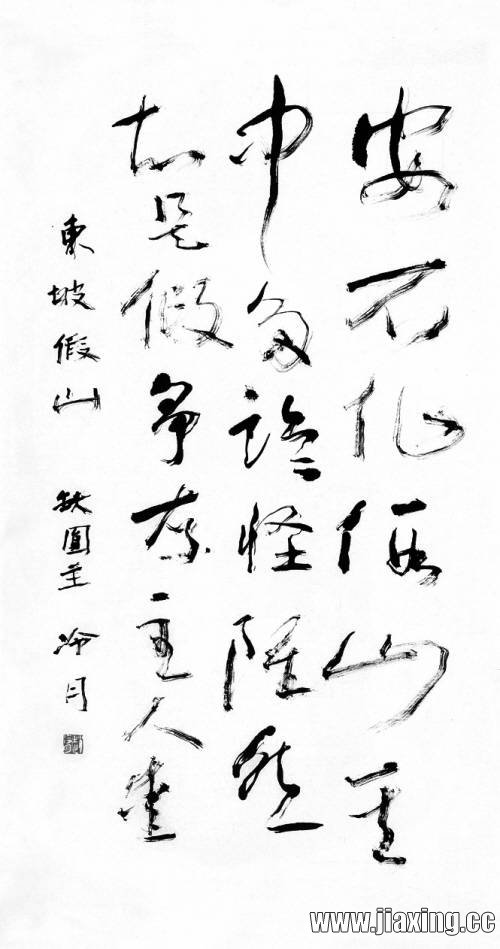 安石作假山其
中多詭怪雖然
知是假爭奈主人愛
東坡假山 缺圓主 冷月
www.jiaxing.cc